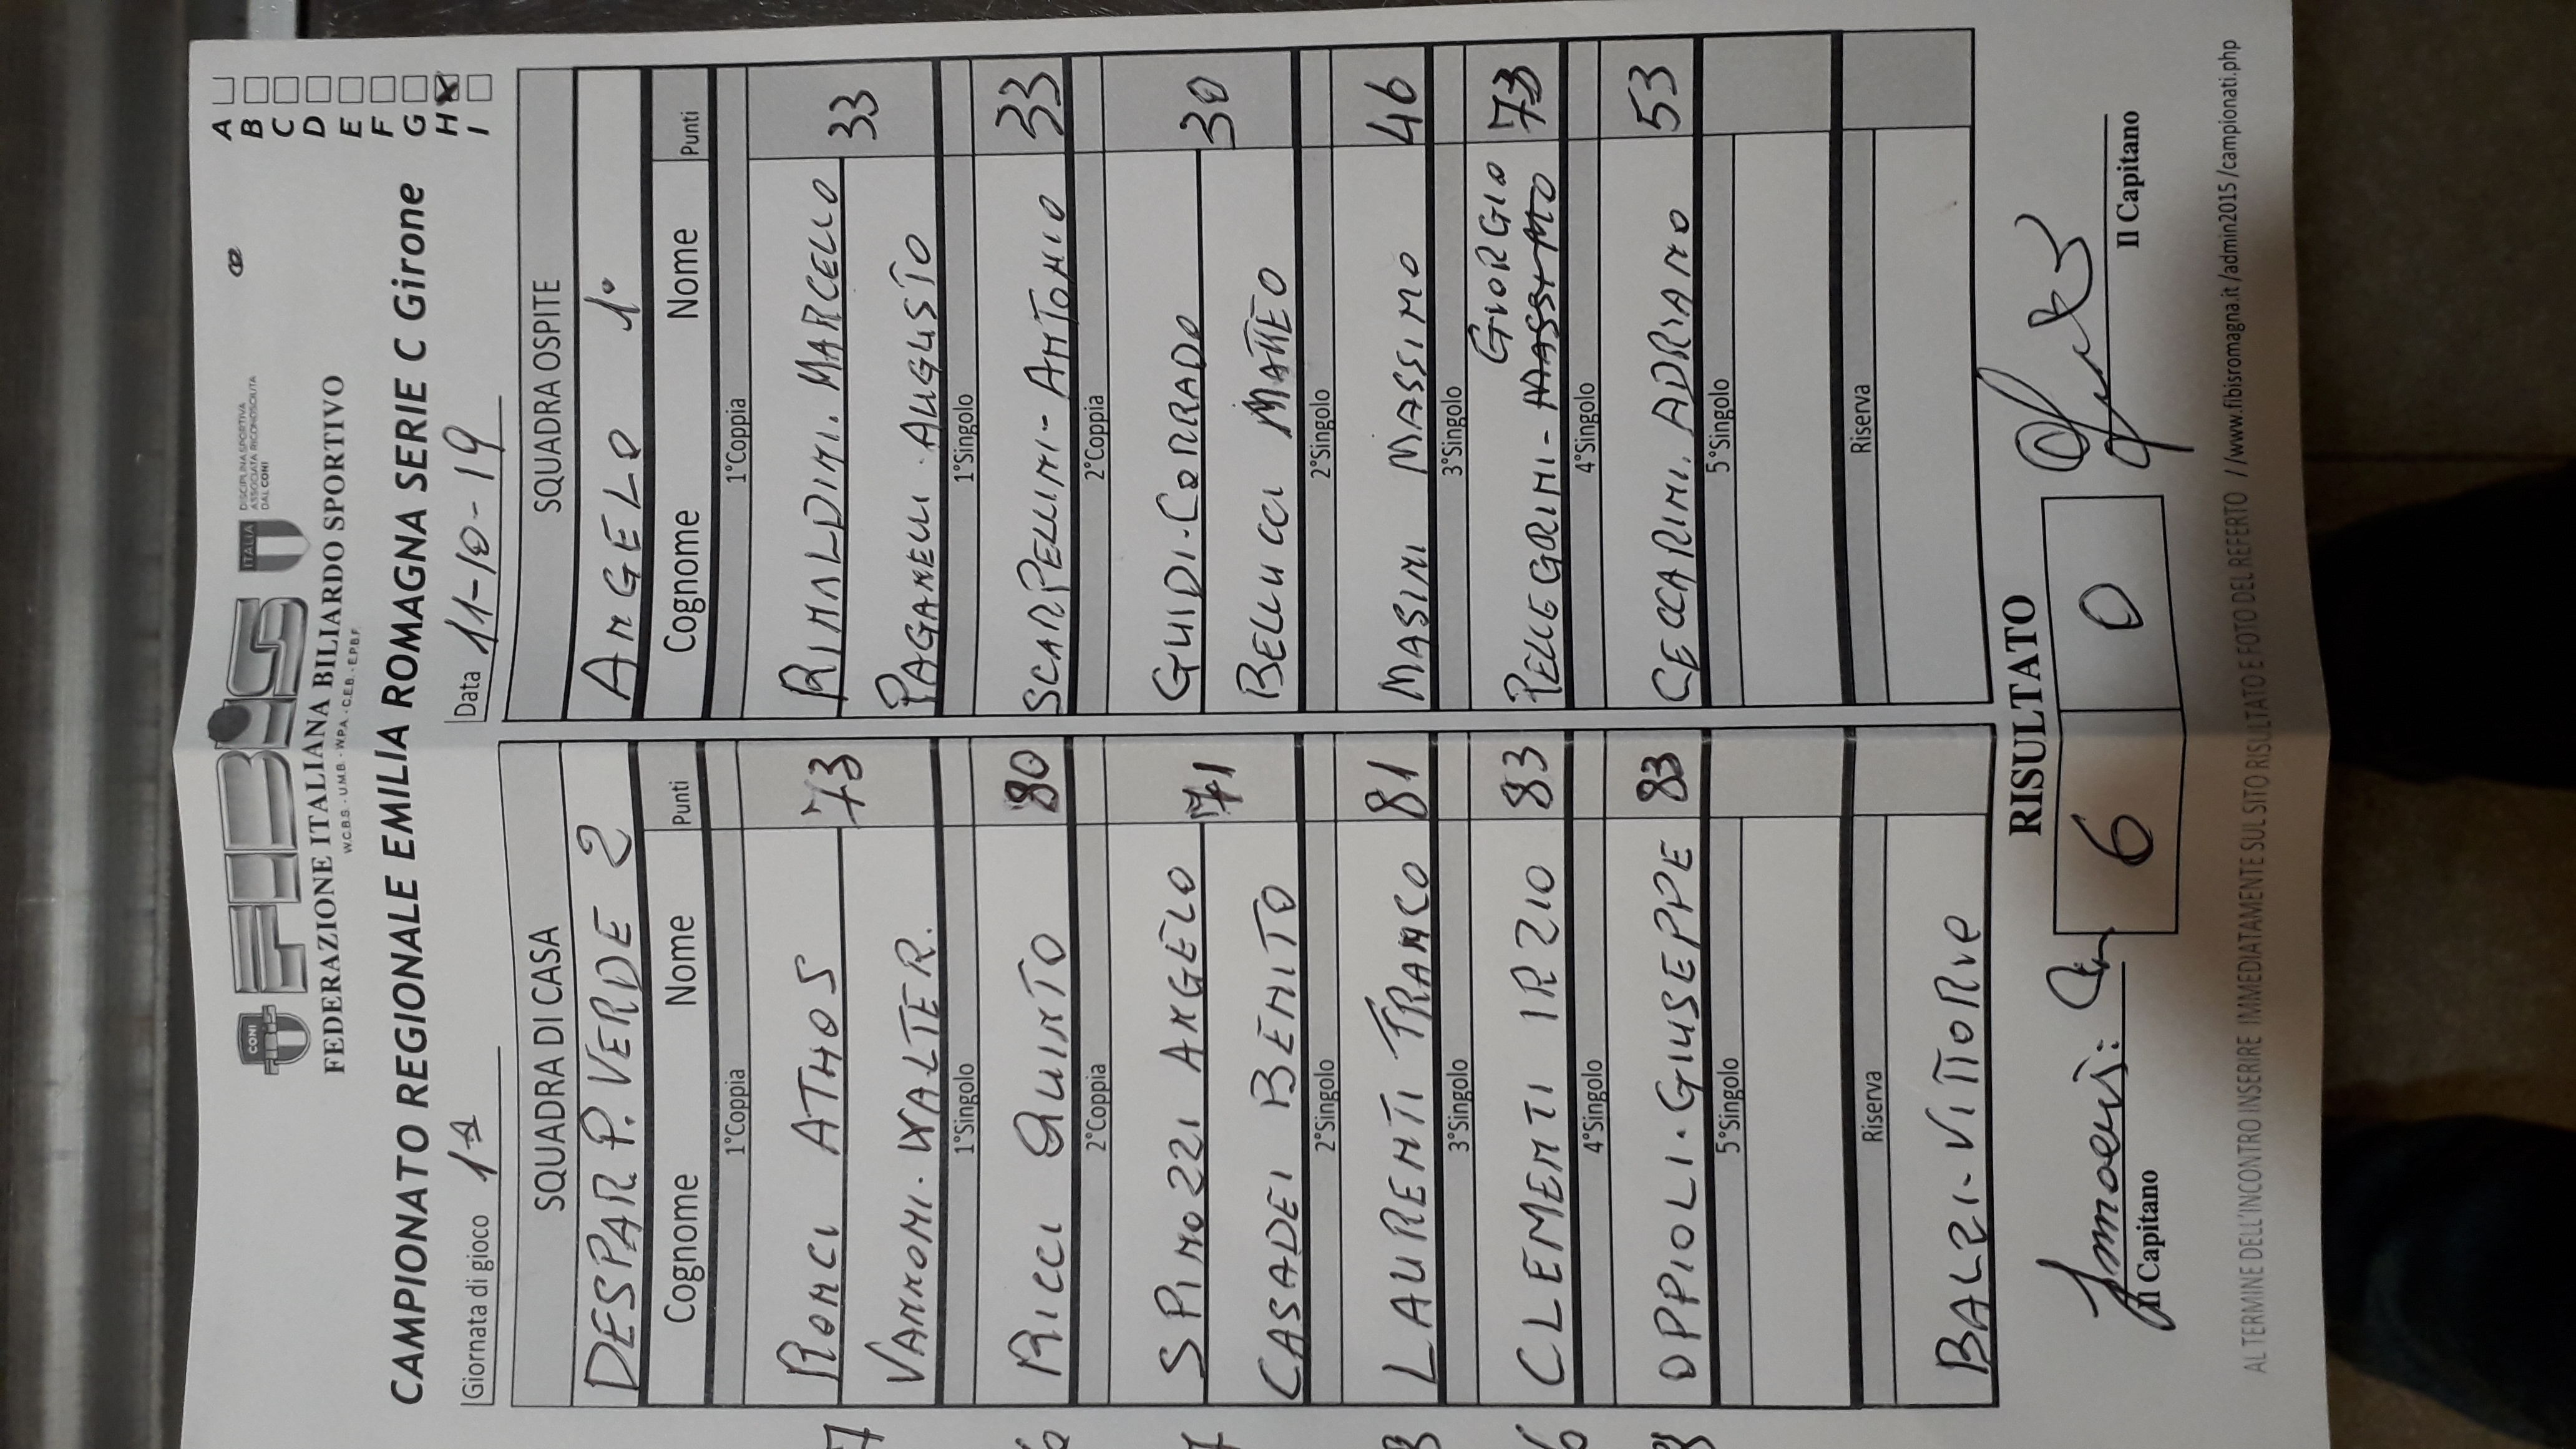 CONI
FIBiS
ITALIA
DISCIPLINA SPORTIVA
ASSOCIATA RICONOSCIUTA
DAL CONI
FEDERAZIONE ITALIANA BILIARDO SPORTIVO
W.C.B.S. - U.M.B. - W.P.A. - C.E.B. - E.P.B.F.
CAMPIONATO REGIONALE EMILIA ROMAGNA SERIE C Girone
A
B
C
D
E
F
G
H
I
Giornata di gioco 1ª Data 11-10-19
SQUADRA DI CASA SQUADRA OSPITE
DESPAR P. VERDE 2 ANGELO 1°
Cognome Nome Punti Cognome Nome Punti
1°Coppia 1°Coppia
RONCI ATHOS 73 RINALDINI. MARCELLO 33
VANNONI. WALTER. PAGANELLI. AUGUSTO
1°Singolo 1°Singolo
RICCI QUINTO 80 SCARPELLINI - ANTONIO 33
2°Coppia 2°Coppia
SPINOZZI ANGELO 71 GUIDI - CORRADO 30
CASADEI BENITO BELLUCCI MATTEO
2°Singolo 2°Singolo
LAURENTI FRANCO 81 MASINI MASSIMO 46
3°Singolo 3°Singolo
CLEMENTI IRZIO 83 PELLEGRINI - MASSIMO GIORGIO 73
4°Singolo 4°Singolo
OPPIOLI. GIUSEPPE 83 CECCARINI. ADRIANO 53
5°Singolo 5°Singolo
Riserva Riserva
BALZI. VITTORIO
RISULTATO
6 0
Il Capitano Il Capitano
AL TERMINE DELL'INCONTRO INSERIRE IMMEDIATAMENTE SUL SITO RISULTATO E FOTO DEL REFERTO //www.fibisromagna.it/admin2015/campionati.php